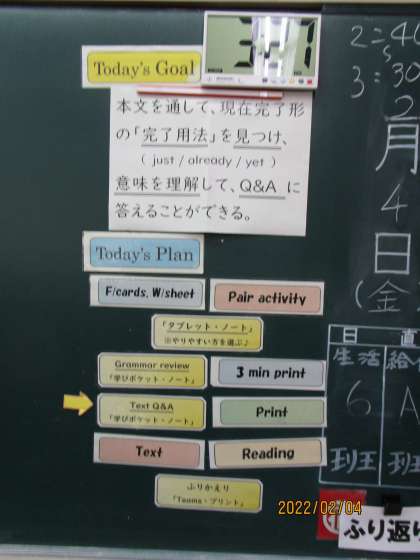 Today's Goal
本文を通して、現在完了形
の「完了用法」を見つけ、
( just / already / yet )
意味を理解して、Q&A に
答えることができる。
Today's Plan
F/cards, W/sheet
Pair activity
「タブレット・ノート」
※やりやすい方を選ぶ♪
Grammar review
「学びポケット・ノート」
3 min print
Text Q&A
「学びポケット・ノート」
Print
Text
Reading
ふりかえり
「Teams・プリント」
2
月
4
日
(金
日
直
生活
6
班
給
A
班
ふり返り
2022/02/04